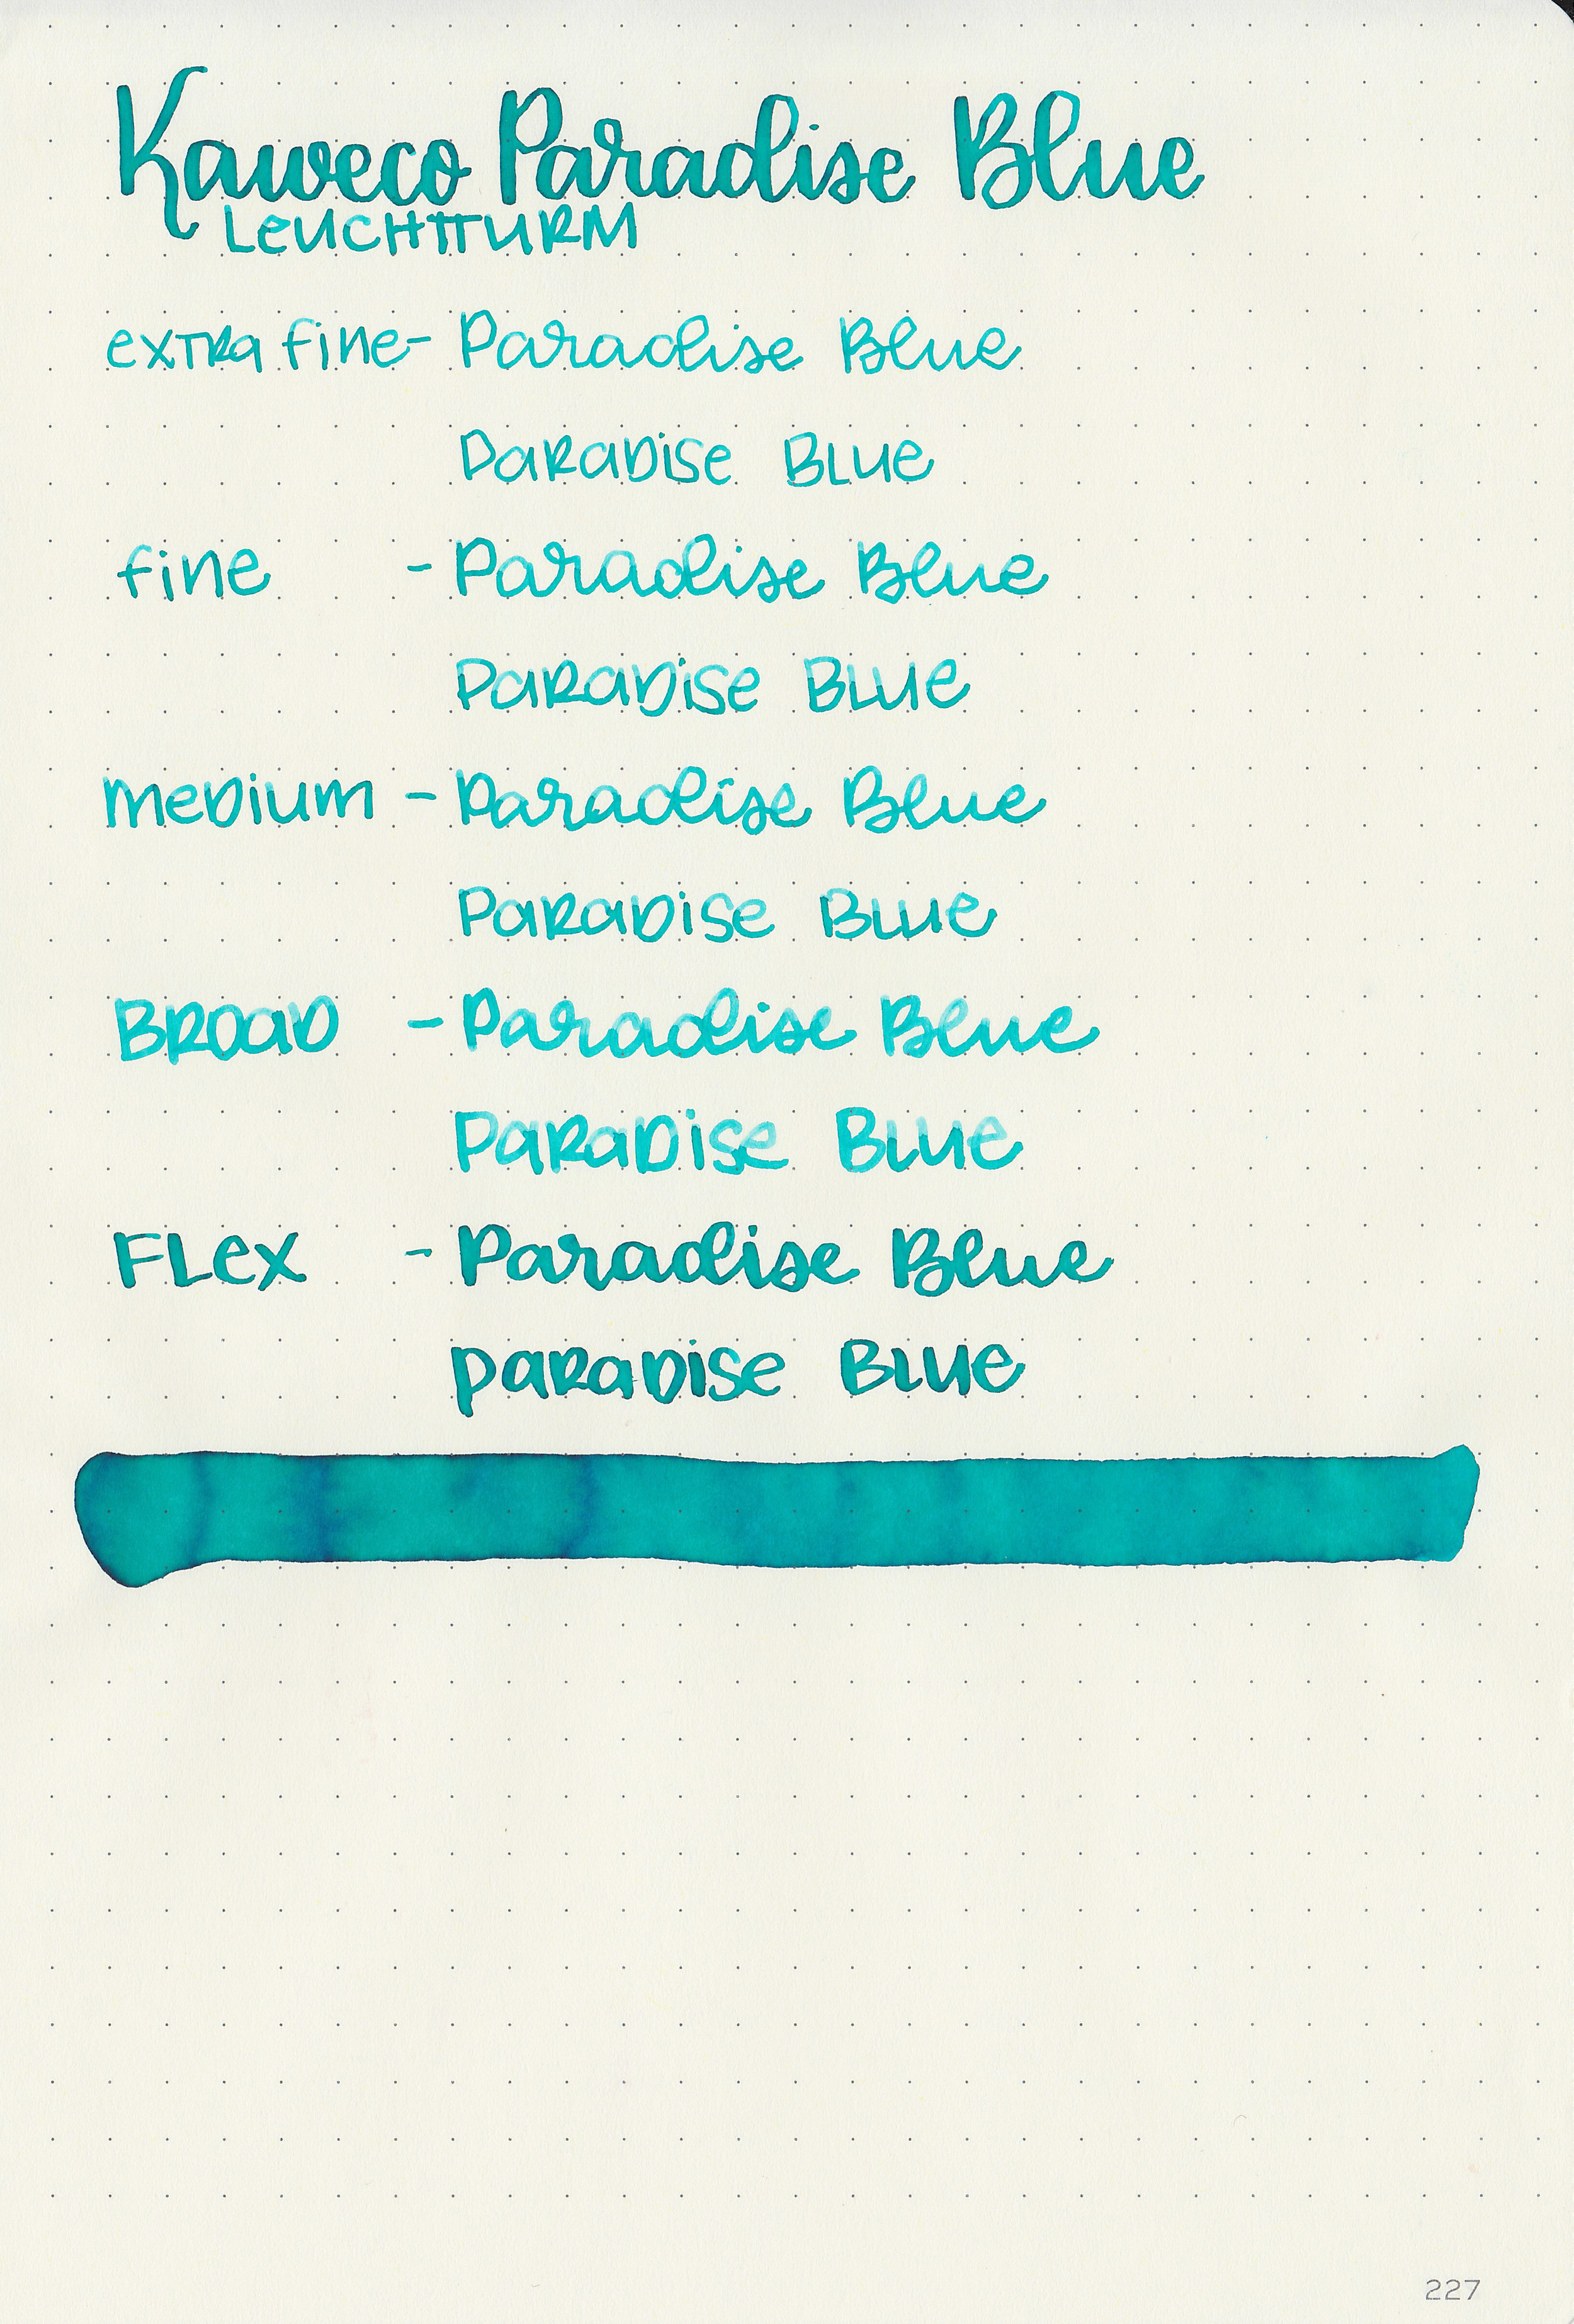 Kaweco Paradise Blue
LeUCHTTURM
exTRa fine- Paradise Blue
PaRaDise BLUe
fine - Paradise Blue
PaRaDiSe BLUe
meDium - Paradise Blue
PaRaDiSe BLUe
BROaD - Paradise Blue
PaRaDise BLUe
FLex - Paradise Blue
PaRaDiSe BLUe
227